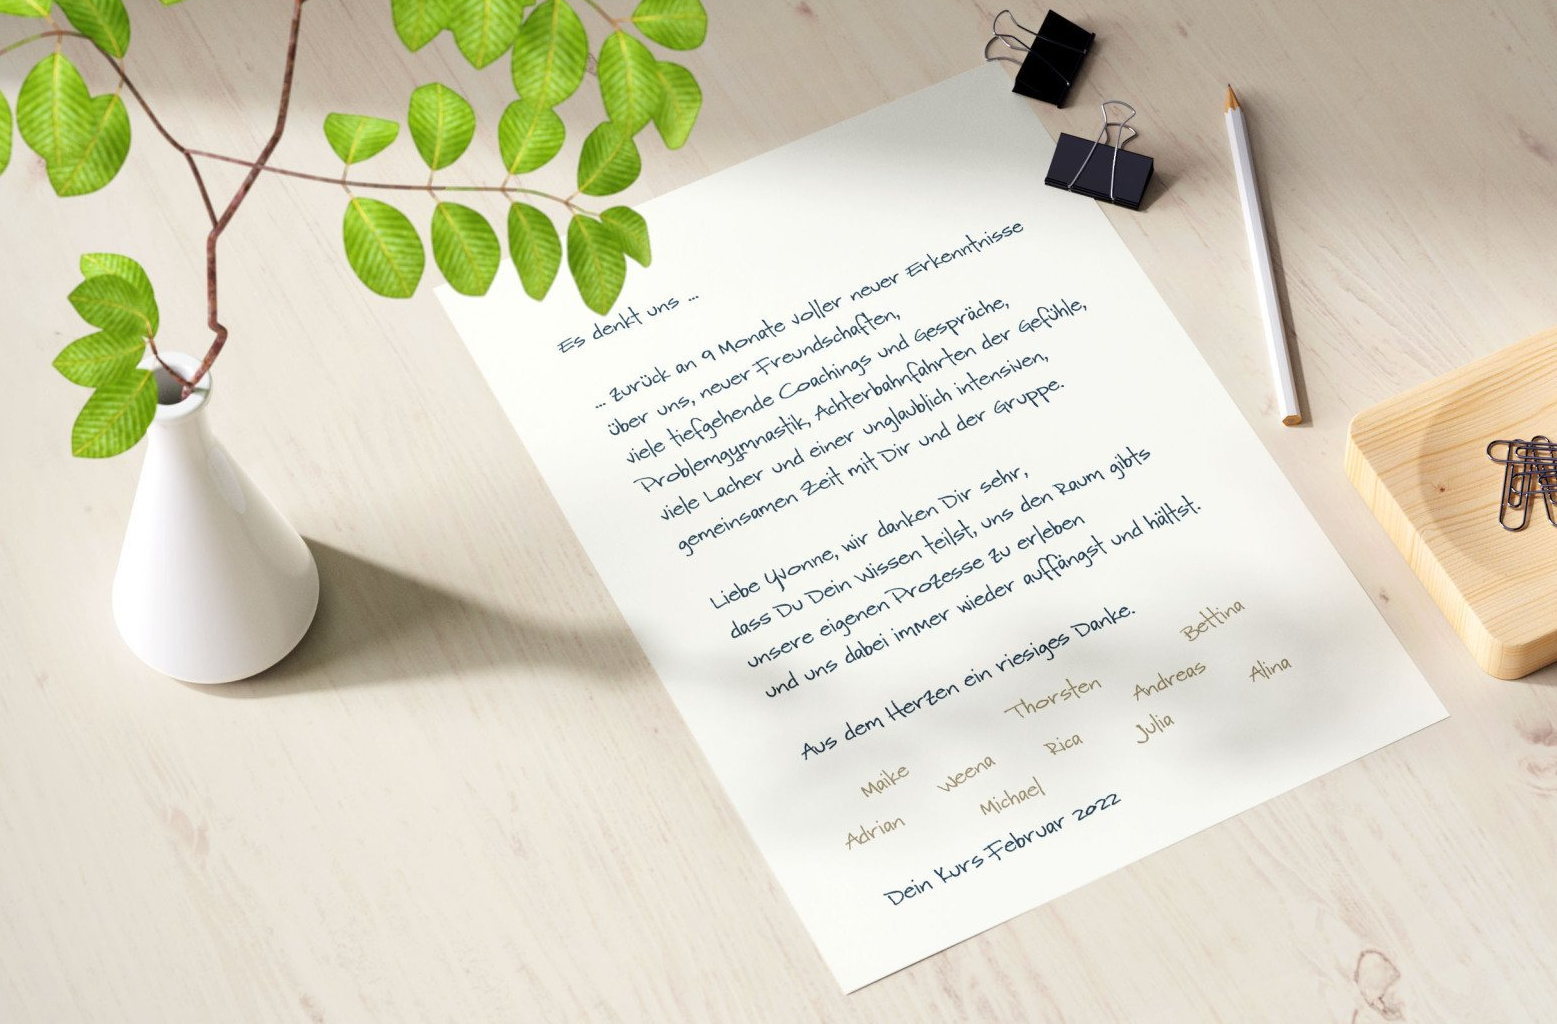 Es denkt uns ...
... zurück an 9 Monate voller neuer Erkenntnisse
über uns, neuer Freundschaften,
viele tiefgehende Coachings und Gespräche,
Problemgymnastik, Achterbahnfahrten der Gefühle,
viele Lacher und einer unglaublich intensiven,
gemeinsamen Zeit mit Dir und der Gruppe.
Liebe Yvonne, wir danken Dir sehr,
dass Du Dein Wissen teilst, uns den Raum gibts
unsere eigenen Prozesse zu erleben
und uns dabei immer wieder auffängst und hältst.
Aus dem Herzen ein riesiges Danke.
Bettina
Thorsten Andreas Alina
Maike Weena Rica Julia
Adrian Michael
Dein Kurs Februar 2022